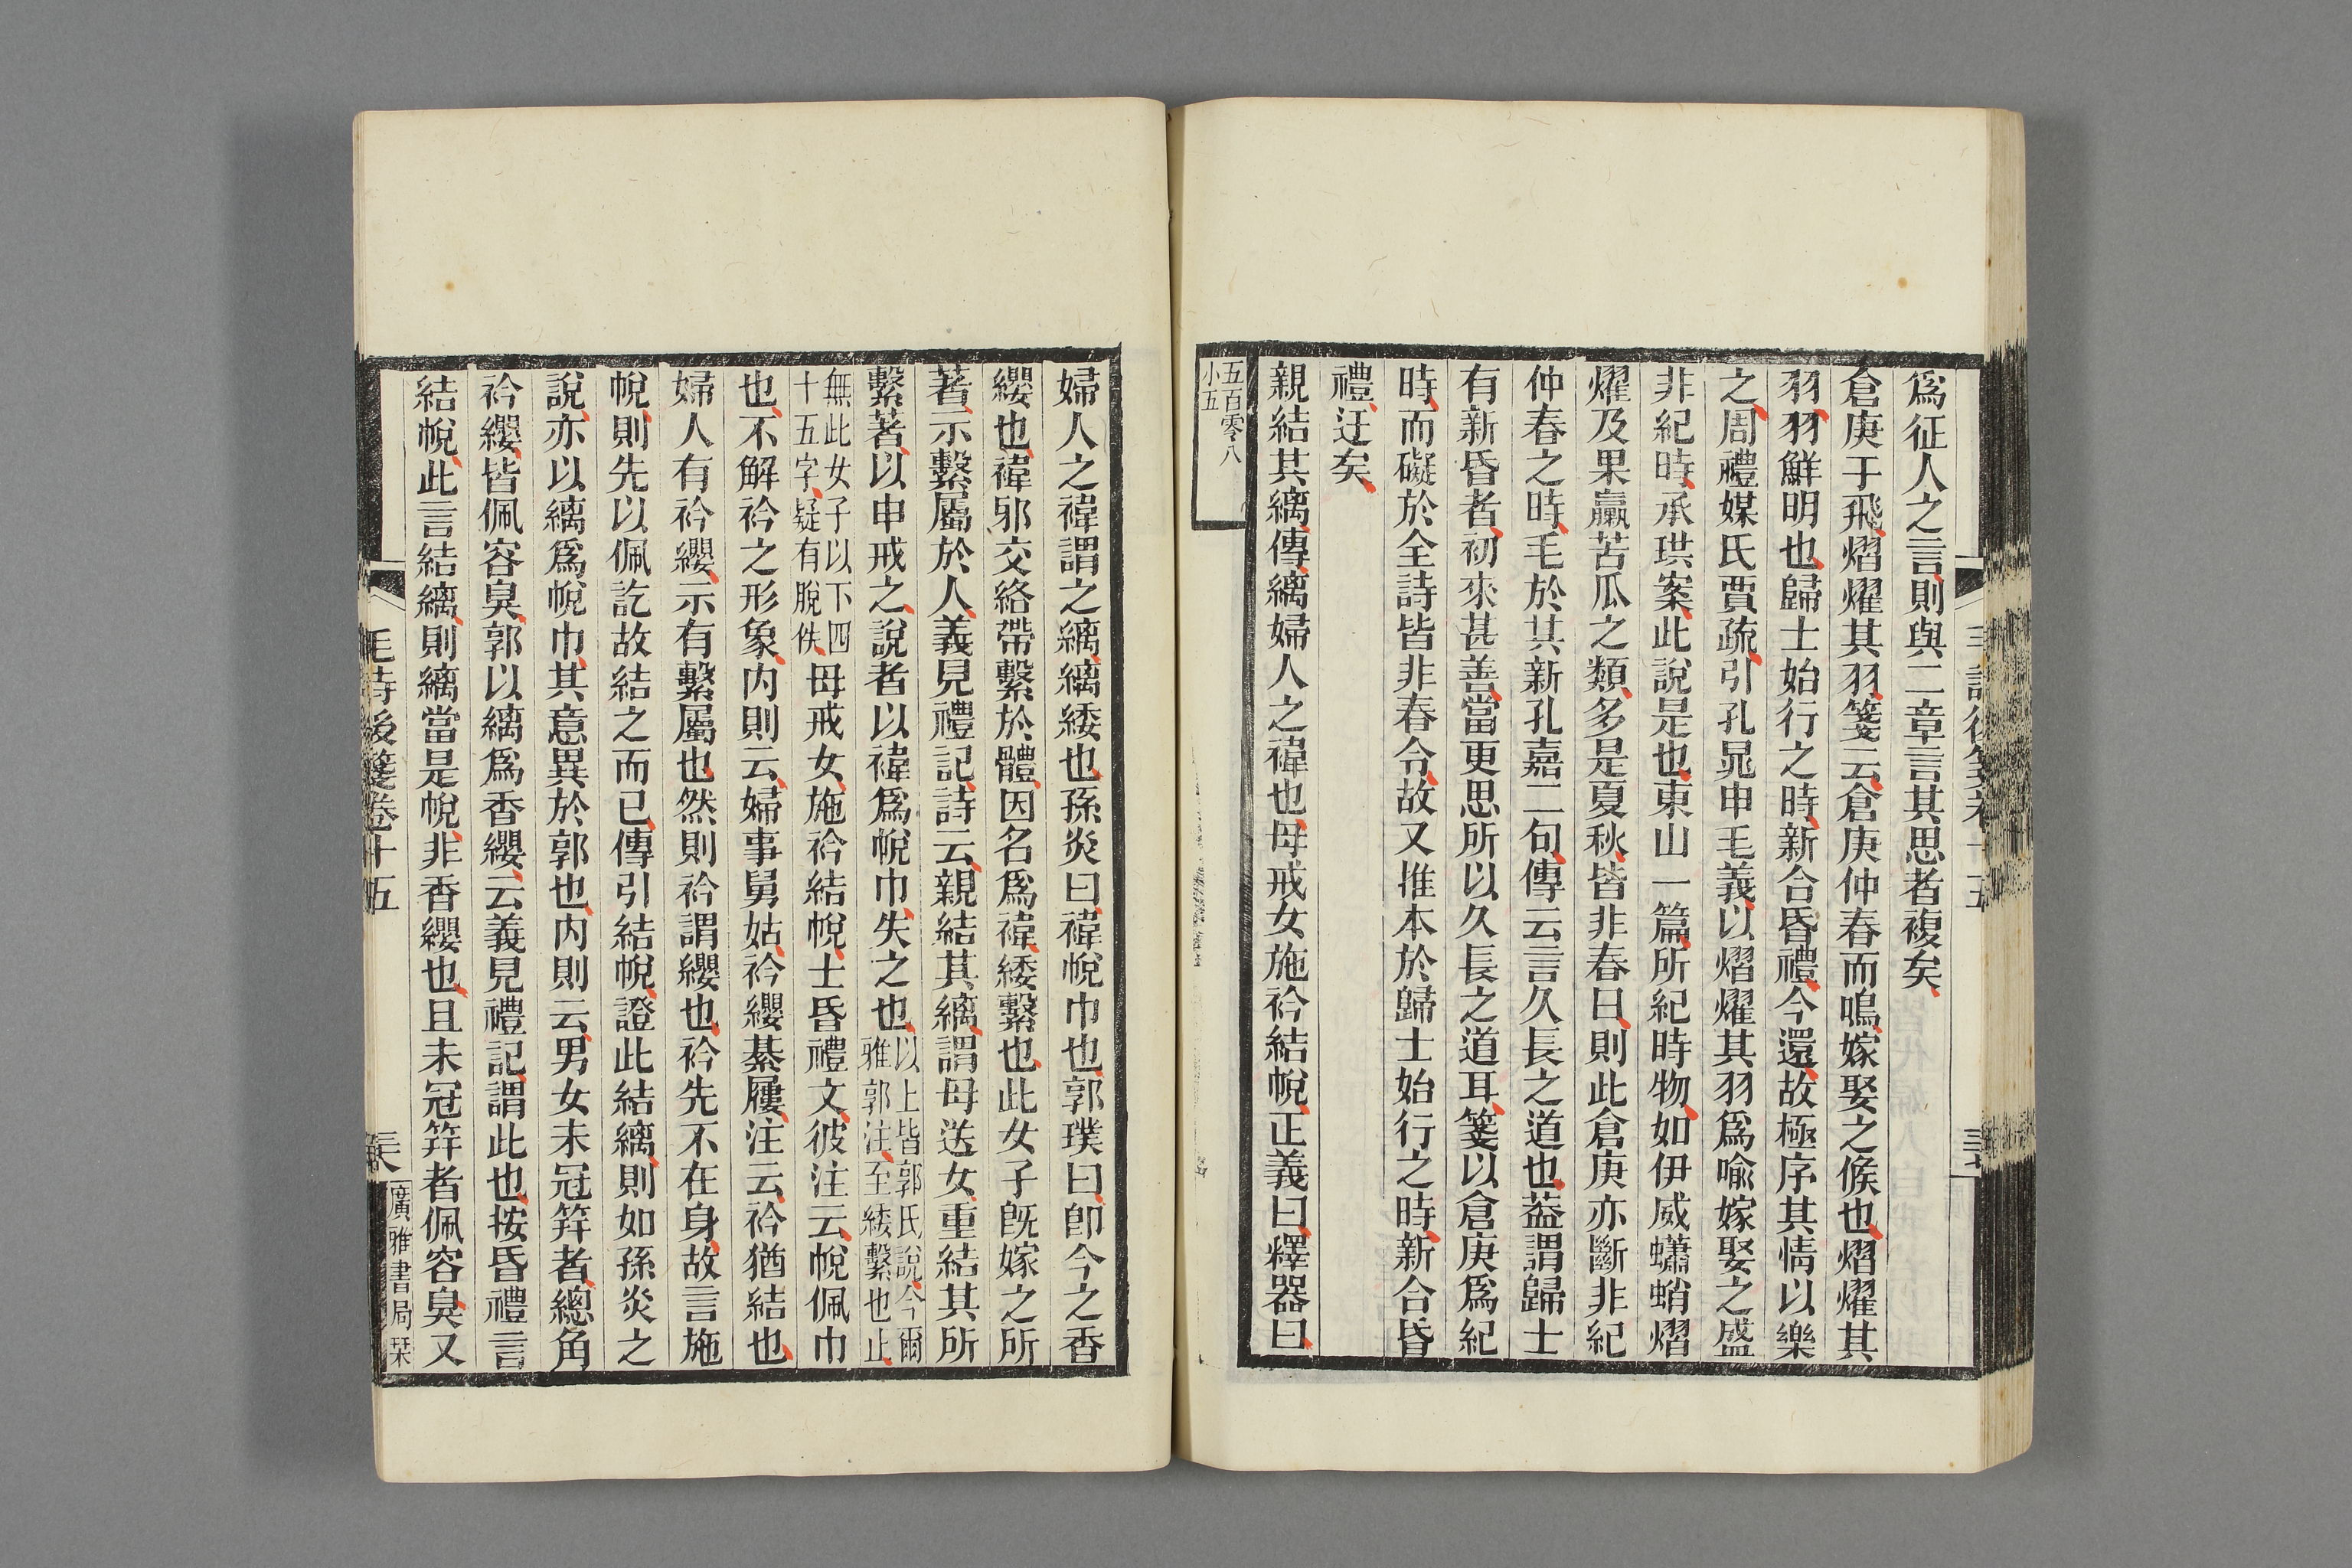 爲征人之言則與二章言其思者複矣
倉庚于飛熠燿其羽箋云倉庚仲春而鳴嫁娶之候也熠燿其
羽羽鮮明也歸士始行之時新合昏禮今還故極序其情以樂
之周禮媒氏賈疏引孔晁申毛義以熠燿其羽爲喻嫁娶之盛
非紀時承珙案此說是也東山一篇所紀時物如伊威蠨蛸熠
燿及果臝苦瓜之類多是夏秋皆非春日則此倉庚亦斷非紀
仲春之時毛於其新孔嘉二句傳云言久長之道也葢謂歸士
有新昏者初來甚善當更思所以久長之道耳箋以倉庚爲紀
時而礙於全詩皆非春令故又推本於歸士始行之時新合昏
禮迂矣
親結其縭傳縭婦人之褘也母戒女施衿結帨正義曰釋器曰
五百零八
小五
婦人之褘謂之縭縭緌也孫炎曰褘帨巾也郭璞曰卽今之香
纓也褘邪交絡帶繫於體因名爲褘緌繫也此女子旣嫁之所
著示繫屬於人義見禮記詩云親結其縭謂母送女重結其所
繫著以申戒之說者以褘爲帨巾失之也以上皆郭氏說今爾
雅郭注至緌繫也止
無此女子以下四
十五字疑有脫佚母戒女施衿結帨士昏禮文彼注云帨佩巾
也不解衿之形象內則云婦事舅姑衿纓綦屨注云衿猶結也
婦人有衿纓示有繫屬也然則衿謂纓也衿先不在身故言施
帨則先以佩訖故結之而已傳引結帨證此結縭則如孫炎之
說亦以縭爲帨巾其意異於郭也內則云男女未冠笄者總角
衿纓皆佩容臭郭以縭爲香纓云義見禮記謂此也按昏禮言
結帨此言結縭則縭當是帨非香纓也且未冠笄者佩容臭又
毛詩後箋卷十五
廣雅書局栞